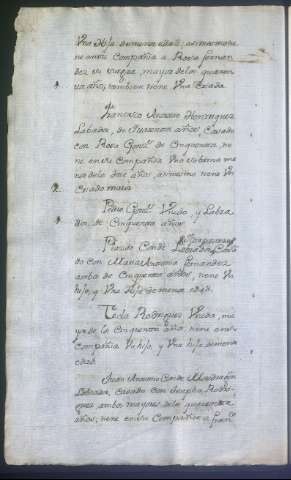 Una Hija de menor edad; asimesmo tie
ne en su Compañia a Rosa Fernan
dez su
va años, tambien tiene Una Criada
Francisco Antonio Henrriquez
Labrador, de quarenta años, Casado
con Rosa Gonz.z de Cinquenta, tie
ne en su Compañia Una sobrina me
nor de doze años, asimismo tiene Un
Criado maior
Pedro Gonz.z Viudo, y Labra
dor, de Cinquenta años
Plazido Conde Labrador, Casa
do con Maria Antonia Fernandez
ambos de Cinquenta años, tiene Un
hijo, y Una Hija de menor edad.
Tecla Rodriguez Viuda, ma
yor de los Cinquenta años, tiene en su
Compañia Un hijo, y Una Hija de menor
edad
Juan Antonio Conde
Labrador, Casado con Josepha Rodri
guez ambos mayores de los quarenta
años; tiene en su Compañia a Fran.co